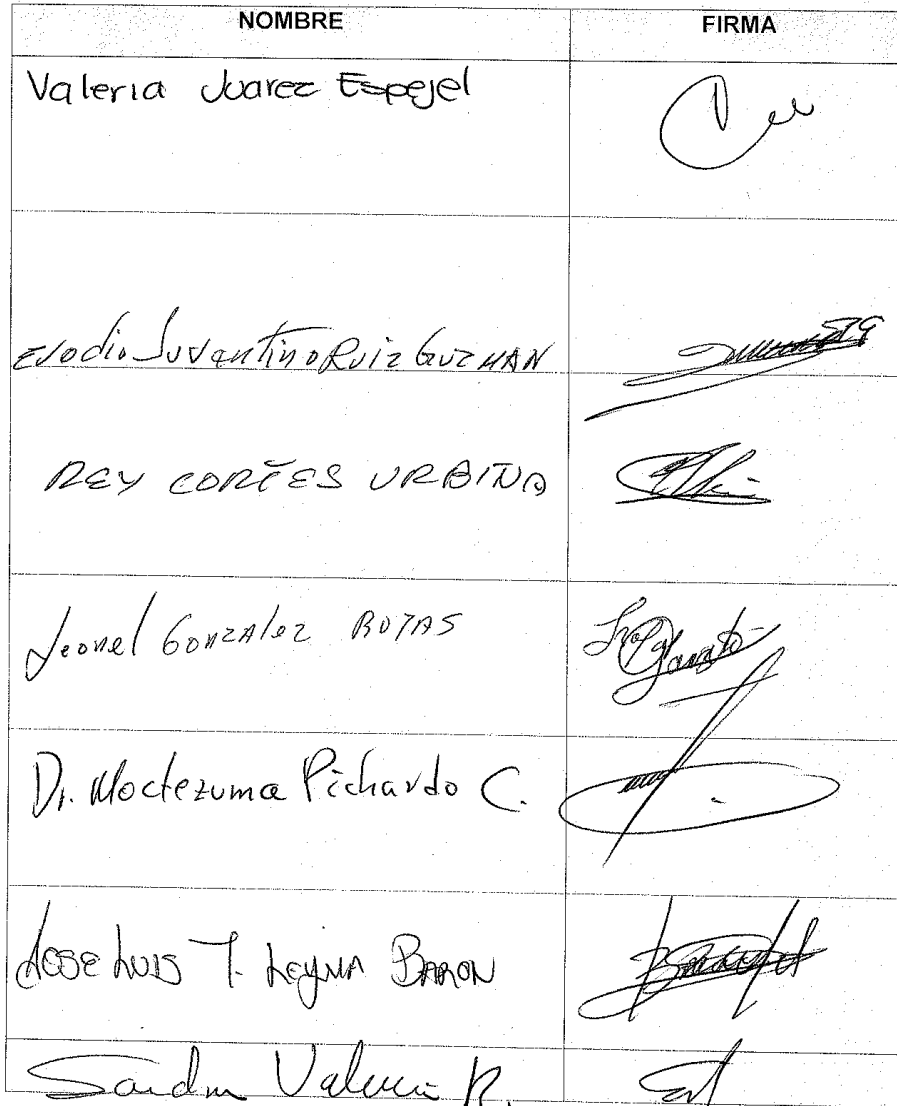 NOMBRE FIRMA
Valeria Juarez Espejel
Evodio Juventino Ruiz GUZMAN
REY CORTÉS URBINA
Leonel GONZALEZ ROJAS
Dr. Moctezuma Pichardo C.
JOSE LUIS T. LEYNA BARON
Sandra Valencia R.